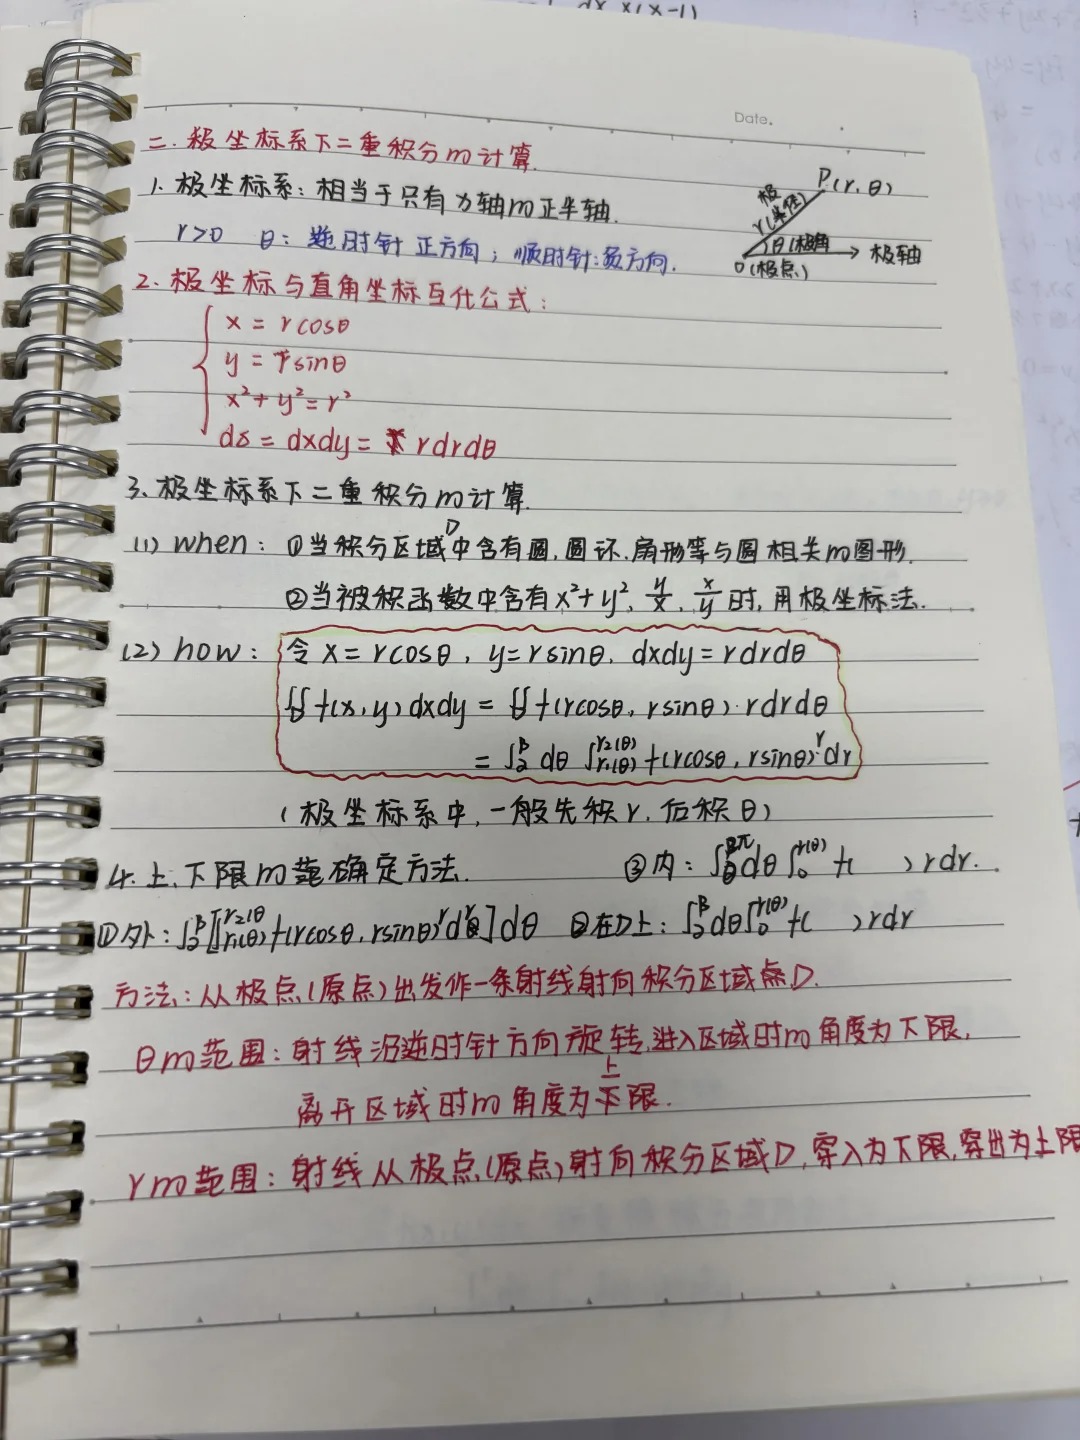 Date.
二.极坐标系下二重积分m计算.
1.极坐标系:相当于只有x轴m正半轴.
P(r,θ)
极
r(半径)
θ(极角
O(极点)
极轴
r>0 θ:逆时针正方向;顺时针:负方向.
2.极坐标与直角坐标互化公式:
x=rcosθ
y=rsinθ
x²+y²=r²
ds=dxdy=rdrdθ
3.极坐标系下二重积分m计算.
(1)when:①当积分区域D中含有圆,圆环.扇形等与圆相关m图形.
②当被积函数中含有x²+y²,y/x,x/y时,用极坐标法.
(2)how:令x=rcosθ,y=rsinθ.dxdy=rdrdθ
∬f(x,y)dxdy=∬f(rcosθ,rsinθ)·rdrdθ
=∫_α^β dθ∫_{r₁(θ)}^{r₂(θ)} f(rcosθ,rsinθ)·rdr
(极坐标系中,一般先积r,后积θ)
4.上、下限m范确定方法.
③内:∫_0^{2π}dθ∫_0^{r(θ)} f( )rdr.
①外:∫_α^β[∫_{r₁(θ)}^{r₂(θ} f(rcosθ,rsinθ)rdr]dθ ②在D上:∫_α^β dθ∫_0^{r(θ)} f( )rdr
方法:从极点(原点)出发作一条射线射向积分区域D.
θm范围:射线沿逆时针方向旋转,进入区域时m角度为下限,
离开区域时m角度为上限.
rm范围:射线从极点(原点)射向积分区域D,穿入为下限,穿出为上限